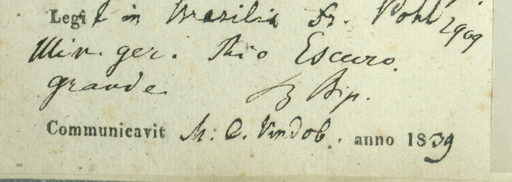 Legit in Brasilia Dr. Pohl 2909
Min. ger. Rio Escuro
grande. Bip.
Communicavit M. C. Vindob. anno 1839